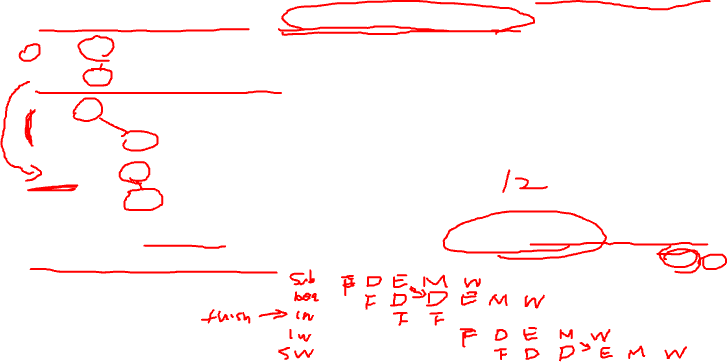 12
sub F D E M W
beq F D D E M W
flush → lw F F
lw F D E M W
sw F D D E M W